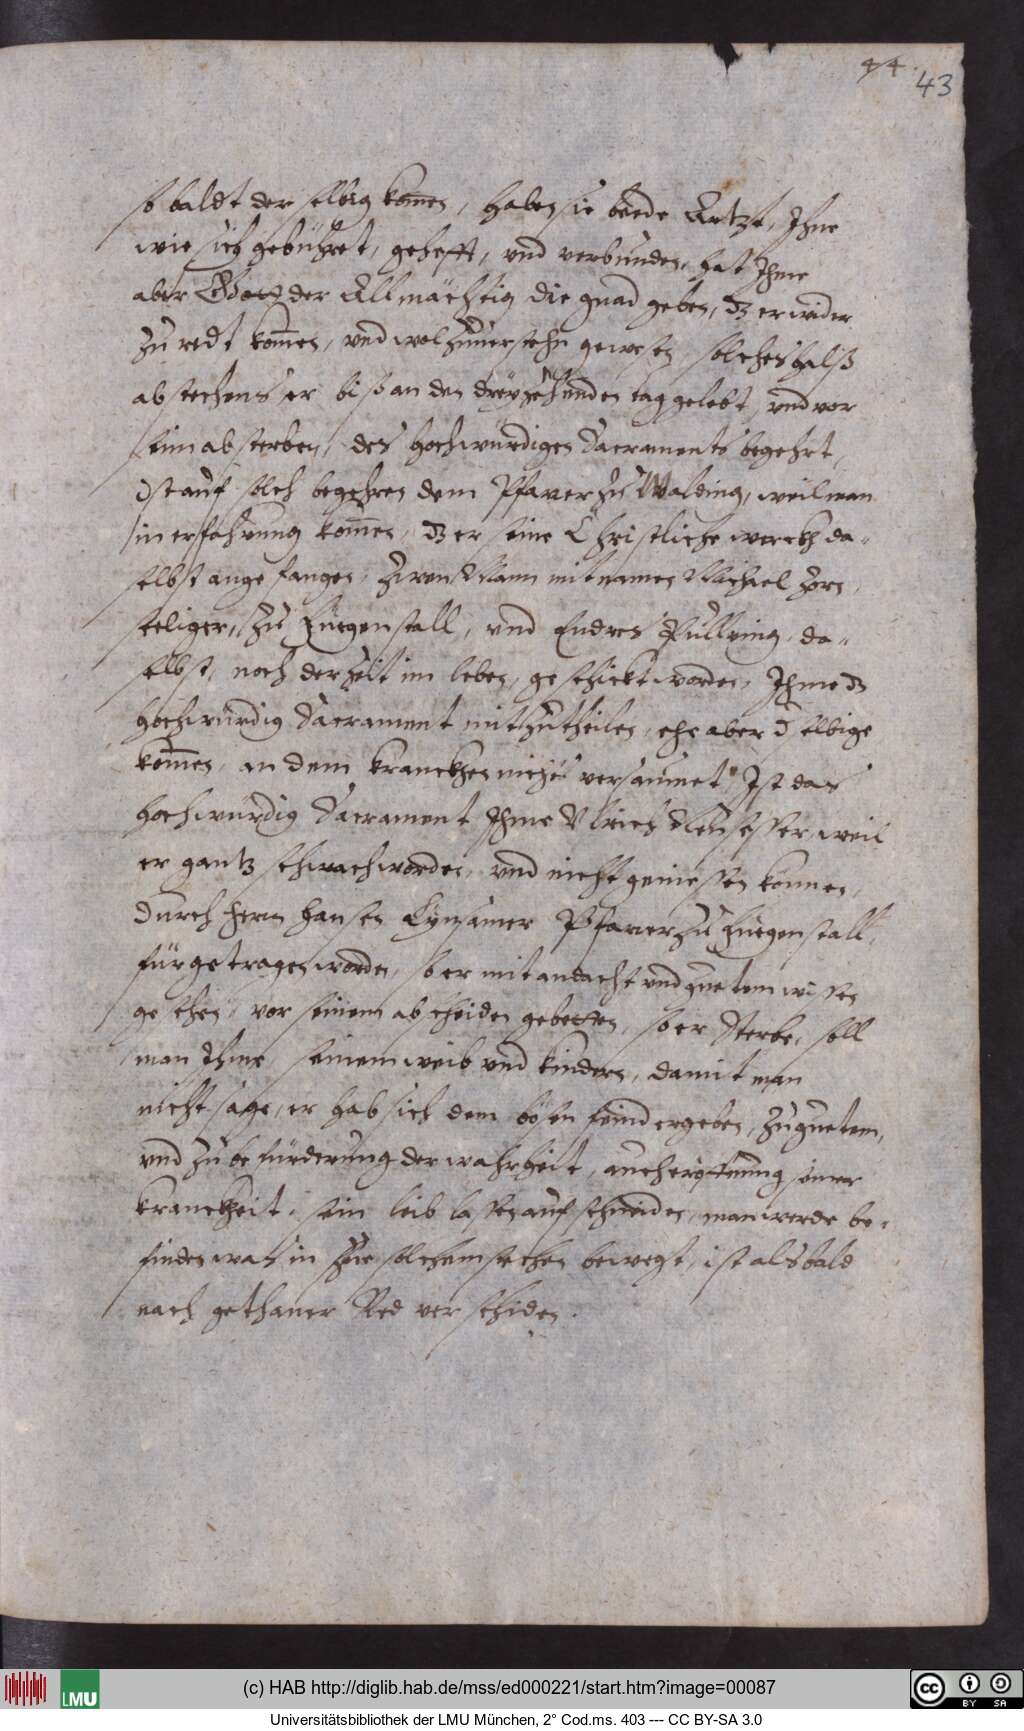 44.
43
so baldt der selbig kom̄en, haben sie beede Artzt, Ihne
wie sich gebühret, gehefft, vnd verbunden, hat Ihme
aber Gott der Allmächtig die gnad geben, dz er wider
zu redt kom̄en, vnd wol zuuersehn gewesen, solches halß
abstechens er biß an den dreyzehenden tag gelebt, vnd vor
seim absterben, des hochwürdigen Sacraments begehrt,
Ist auf solch begehren dem Pfarrer zu Walding, weil man
in erfahrung kom̄en, dz er seine Christliche werckh da-
selbst angefangen, zwen Mann mit namen Michael
zu Fuegenstall, vnd Endres Pullring da-
selbst, noch der Zeit im leben, geschickt worden, Ihme dz
hochwürdig Sacrament mitzutheilen, ehe aber dselbige
kom̄en, an dem kranckhen nichts versaumet, Ist das
hochwürdig Sacrament Ihme Vlrich weil
er gantz schwach worden, vnd nicht geniessen können,
durch herrn Hansen Pfarrer zu Fuegenstall,
fürgetragen worden, so er mit andacht vnd guetem wissen
gesehen, vor seinem abscheiden gebetten, so er Sterbe, soll
man Ihme seinem weib vnd kindern, damit man
nicht sage, er hab sich dem bösen feind ergeben, zu guetem,
vnd zu befürderung der warheit, auch eröffnung seiner
kranckheit, sein leib lassen aufschneiden, man werde be-
finden was in zue solchem stechen bewegt, ist alsbald
nach gethaner Red verschiden.
(c) HAB http://diglib.hab.de/mss/ed000221/start.htm?image=00087
LMU
cc BY SA
Universitätsbibliothek der LMU München, 2° Cod.ms. 403 --- CC BY-SA 3.0